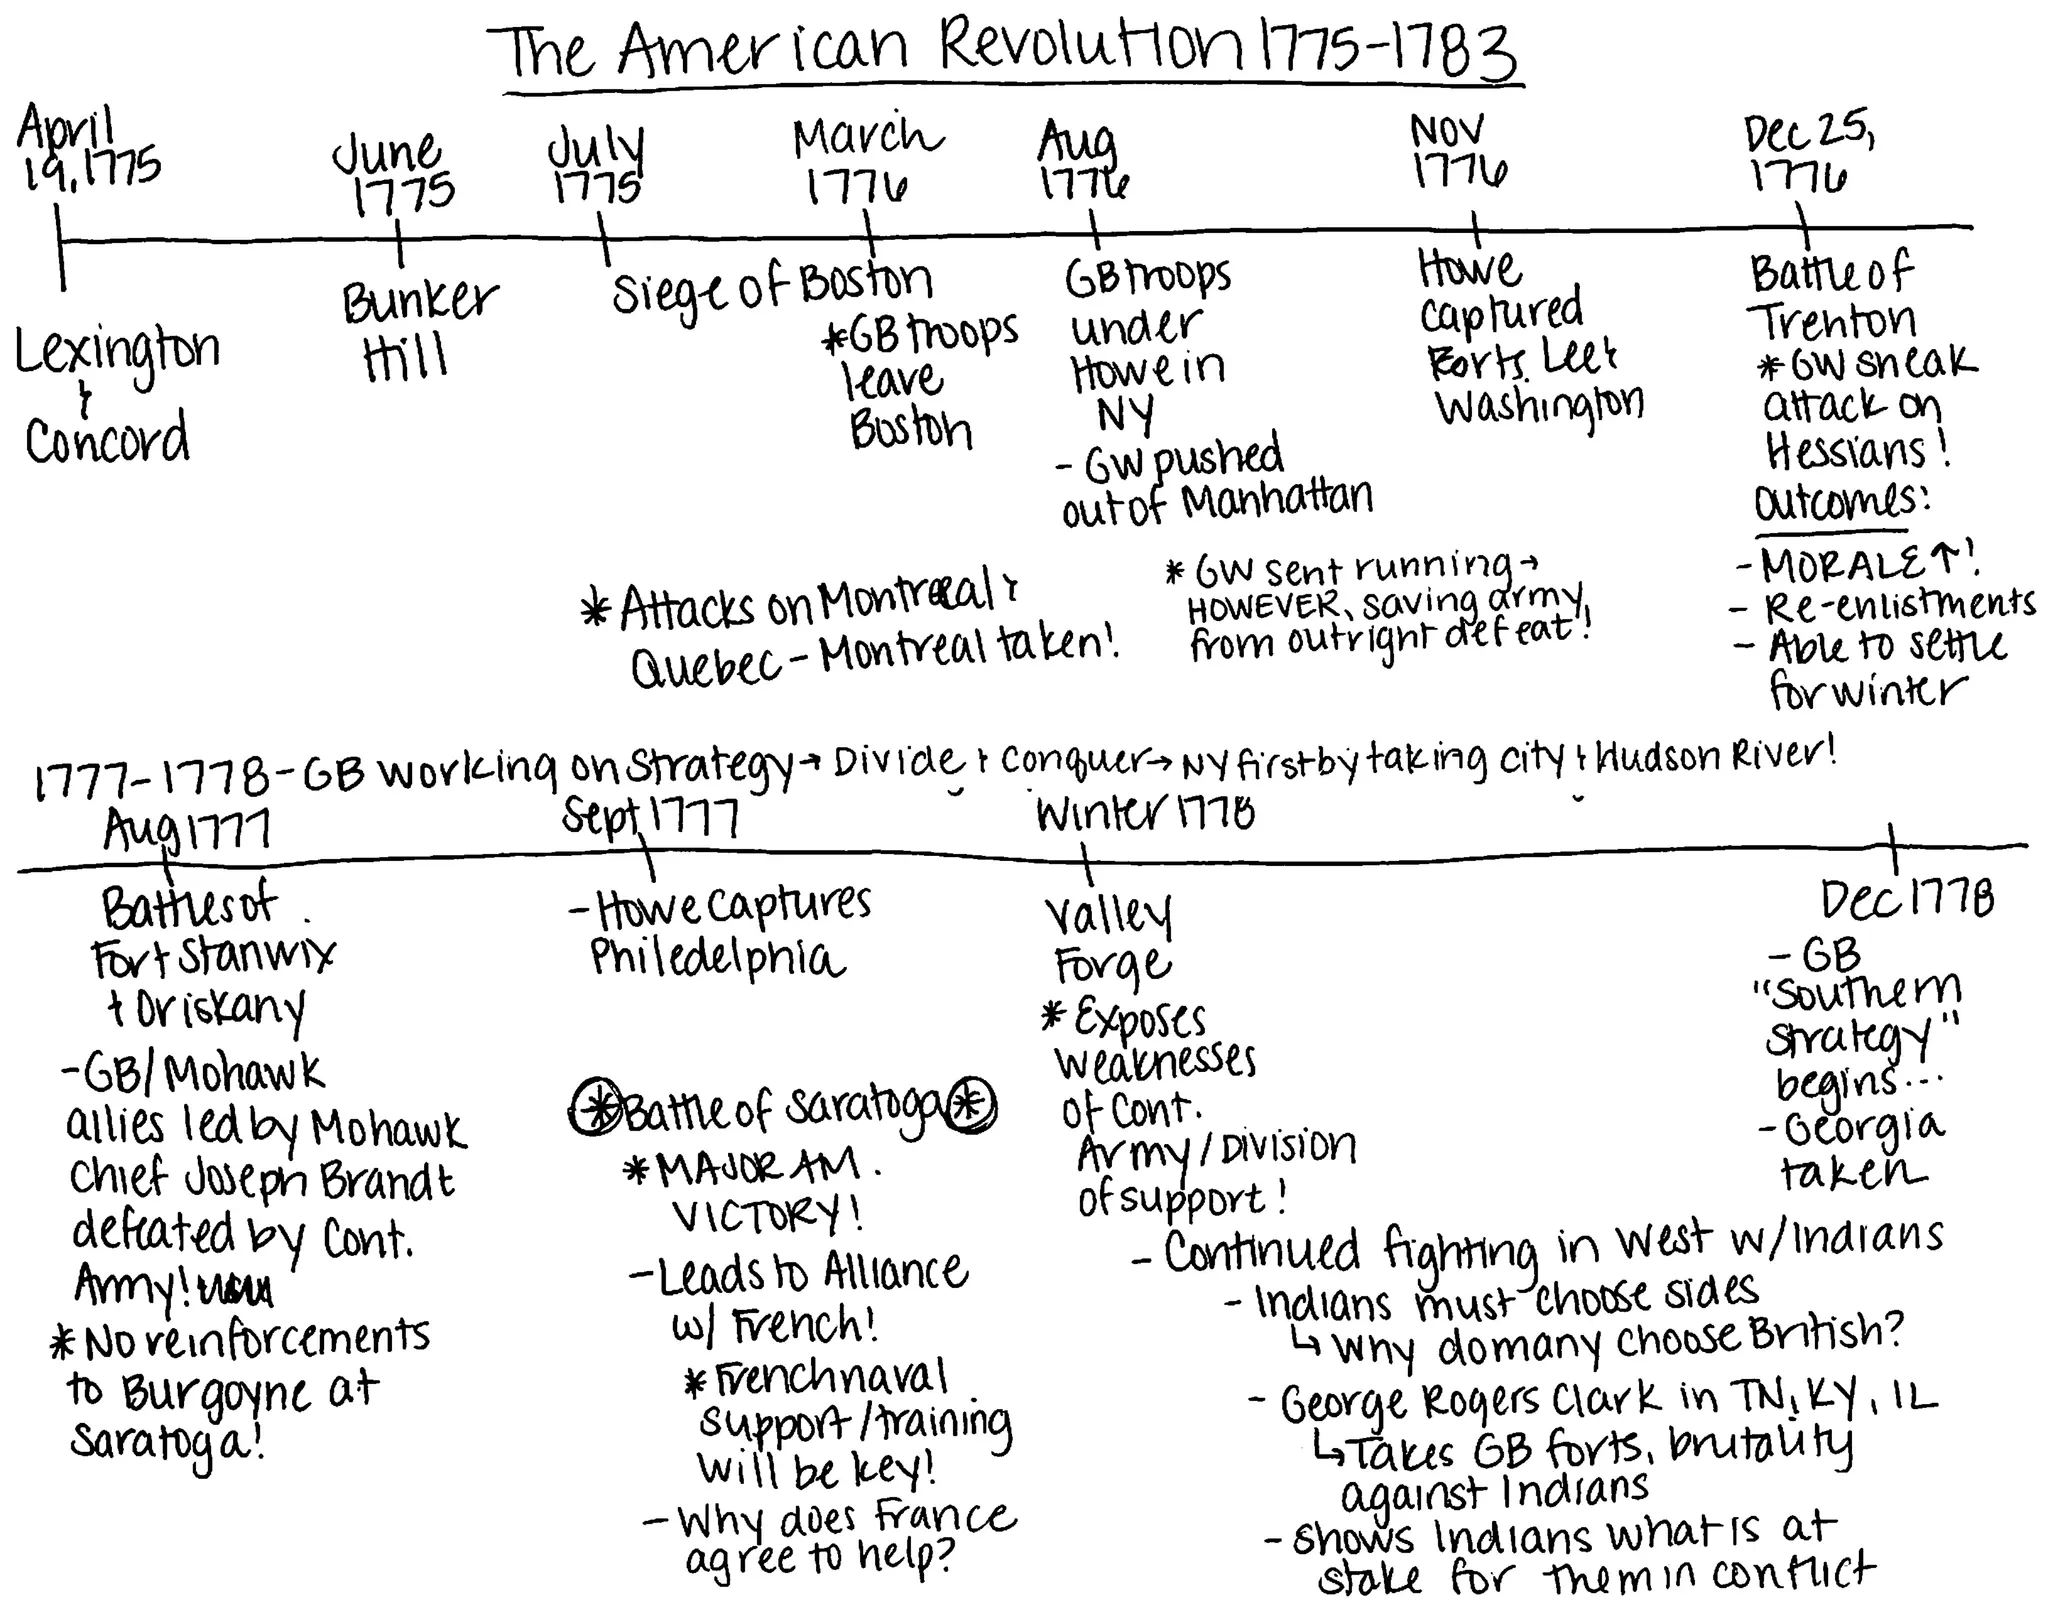 The American Revolution 1775-1783
April
19, 1775
Lexington
&
Concord
June
1775
Bunker
Hill
July
1775
March
1776
Siege of Boston
*GB troops
leave
Boston
Aug
1776
GB troops
under
Howe in
NY
- GW pushed
out of Manhattan
Nov
1776
Howe
captured
Forts Lee &
Washington
Dec 25,
1776
Battle of
Trenton
*GW sneak
attack on
Hessians!
Outcomes:
- MORALE ↑!
- Re-enlistments
- Able to settle
for winter
* Attacks on Montreal &
Quebec - Montreal taken!
* GW sent running →
HOWEVER, saving army,
from outright defeat!
1777-1778 - GB working on strategy → Divide & Conquer → NY first by taking city & Hudson River!
Aug 1777
Battles of
Fort Stanwix
& Oriskany
- GB/Mohawk
allies led by Mohawk
Chief Joseph Brandt
defeated by Cont.
Army!
* No reinforcements
to Burgoyne at
Saratoga!
Sept 1777
- Howe captures
Philedelphia
*Battle of Saratoga*
*MAJOR AM.
VICTORY!
- Leads to Alliance
w/ French!
*French naval
support/training
will be key!
- Why does France
agree to help?
Winter 1778
Valley
Forge
* Exposes
weaknesses
of Cont.
Army/Division
of support!
Dec 1778
- GB
"Southern
Strategy"
begins...
- Georgia
taken
- Continued fighting in West w/Indians
- Indians must choose sides
↳ Why do many choose British?
- George Rogers Clark in TN, KY, IL
↳ Takes GB forts, brutality
against Indians
- Shows Indians what is at
stake for them in conflict